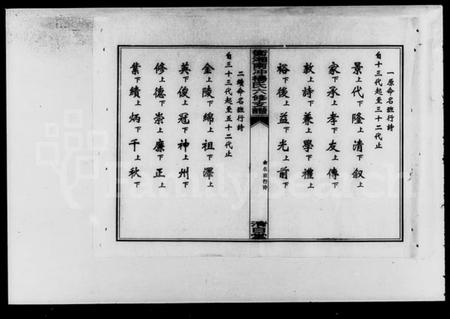 一原命名班行詩
自十三代起至三十二代止
景上代下隆上清下叙上
家下承上孝下友上傳下
敦上詩下兼上學下禮上
裕下後上益下光上前下
衡湘南沖楊氏六修支譜
命名班行詩
清白堂
二續命名班行詩
自三十三代起至五十二代止
金上陵下綿上祖下澤上
英下俊上冠下神上州下
修上德下崇上廉下正上
業下績上炳下千上秋下
FamilySearch